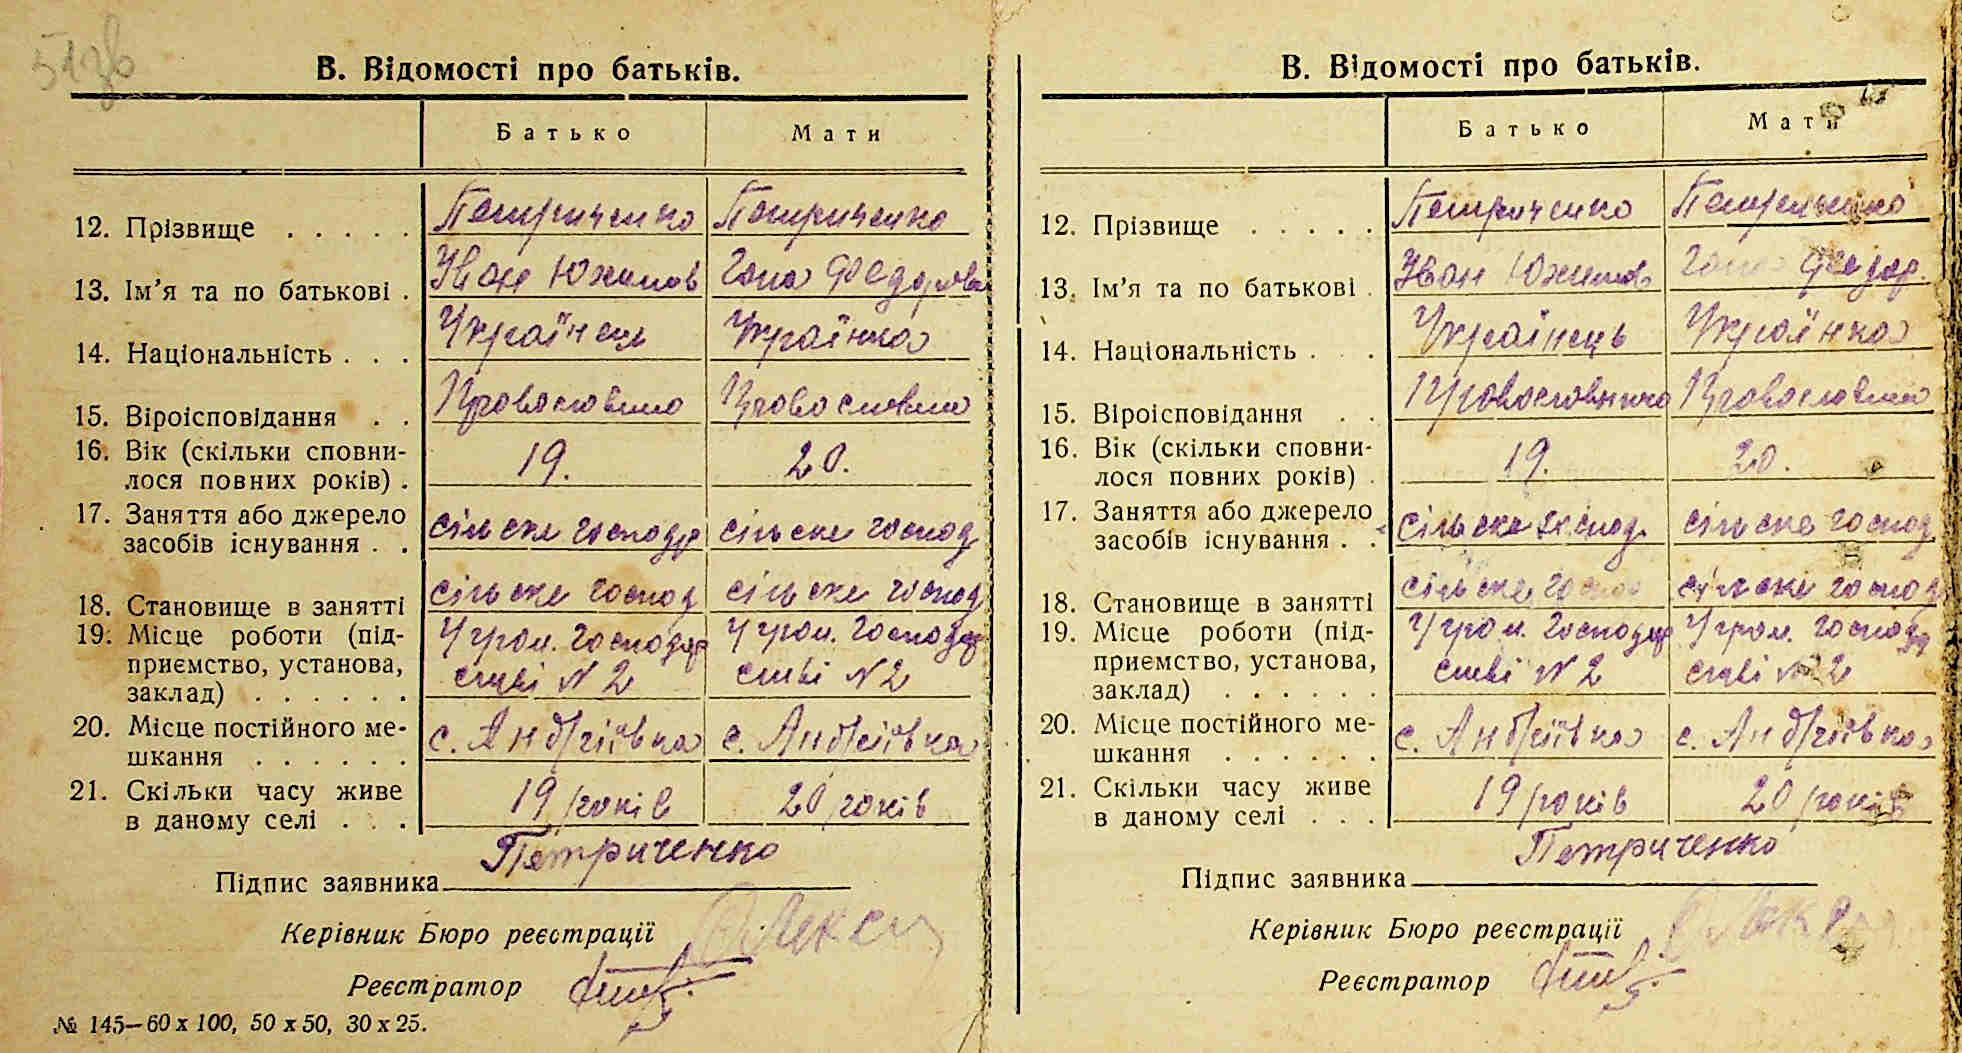 51зв
В. Відомості про батьків.
Батько Мати
12. Прізвище . . . . . Петриченко Петриченко
13. Ім’я та по батькові . Іван Юхимов Гапа Федорівна
14. Національність . . . Українець Українка
15. Віроісповідання . . Православно Православно
16. Вік (скільки сповни-
лося повних років) . 19. 20.
17. Заняття або джерело
засобів існування . . сільске господар сільске господ
18. Становище в занятті сільске господ сільске господ
19. Місце роботи (під-
приємство, установа,
заклад) . . . . . . У гром. господар У гром. господар
стві N 2 стві N 2
20. Місце постійного ме-
шкання . . . . . . с. Андріївка с. Андріївка
21. Скільки часу живе
в даному селі . . . 19 років 20 років
Підпис заявника Петриченко
Керівник Бюро реєстрації
Реєстратор
№ 145—60 x 100, 50 x 50, 30 x 25.
В. Відомості про батьків.
Батько Мати
12. Прізвище . . . . . Петриченко Петриченко
13. Ім’я та по батькові . Іван Юхимов Гапа Федор.
14. Національність . . . Українець Українка
15. Віроісповідання . . Православно Православно
16. Вік (скільки сповни-
лося повних років) . 19. 20.
17. Заняття або джерело
засобів існування . . сільске господ. сільске господ
18. Становище в занятті сільске господ сільске господ
19. Місце роботи (під-
приємство, установа,
заклад) . . . . . . У гром. господар У гром. господар
стві N 2 стві N 2
20. Місце постійного ме-
шкання . . . . . . с. Андріївка с. Андріївка
21. Скільки часу живе
в даному селі . . . 19 років 20 років
Підпис заявника Петриченко
Керівник Бюро реєстрації
Реєстратор